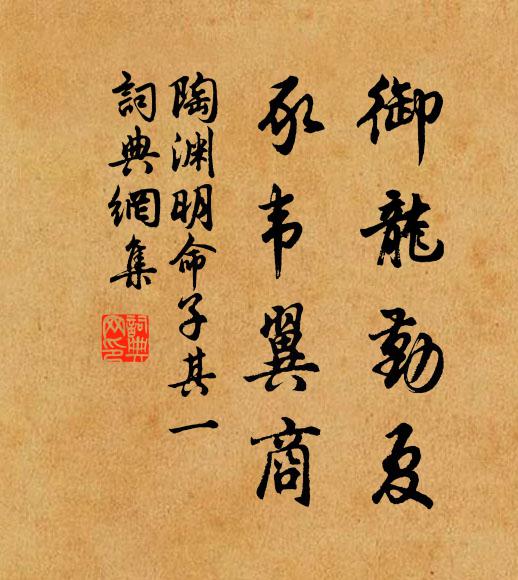 御龍勤夏
豕韦翼商
陶渊明命子其一
詞典網集
詞典
网印